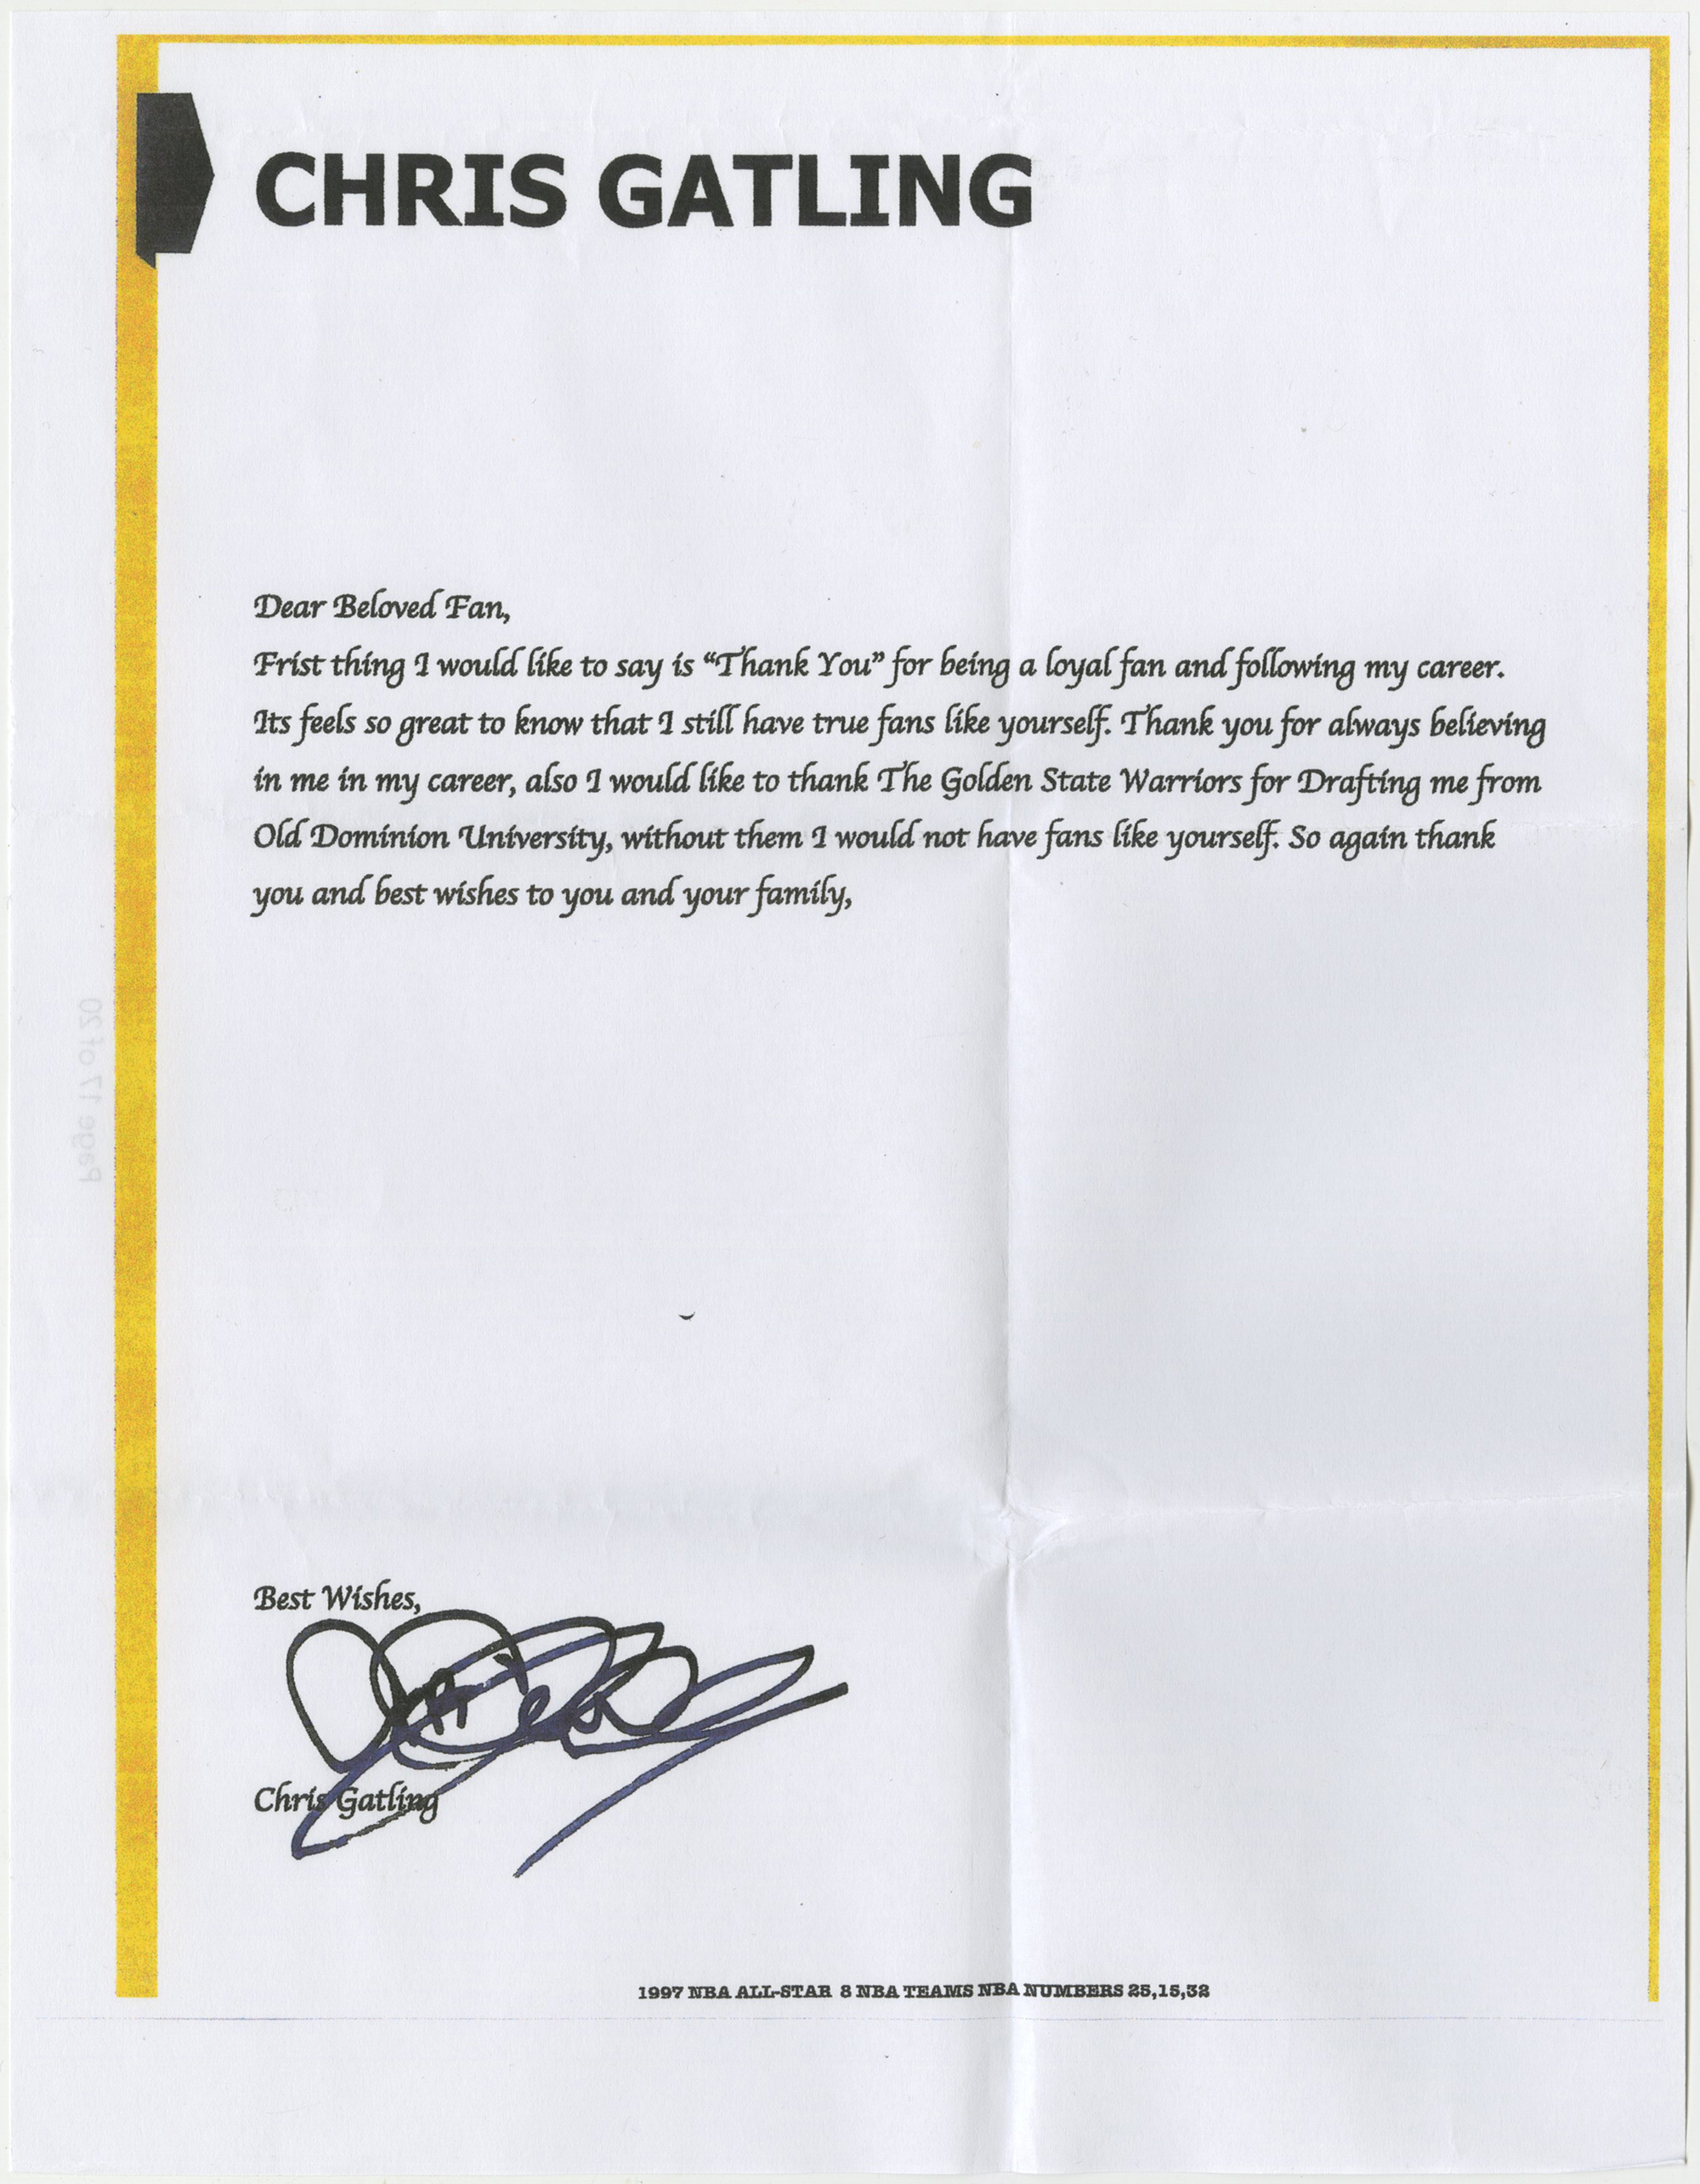 CHRIS GATLING
Dear Beloved Fan,
Frist thing I would like to say is “Thank You” for being a loyal fan and following my career.
Its feels so great to know that I still have true fans like yourself. Thank you for always believing
in me in my career, also I would like to thank The Golden State Warriors for Drafting me from
Old Dominion University, without them I would not have fans like yourself. So again thank
you and best wishes to you and your family,
Page 17 of 20
Best Wishes,
Chris Gatling
1997 NBA ALL-STAR 8 NBA TEAMS NBA NUMBERS 25,15,32